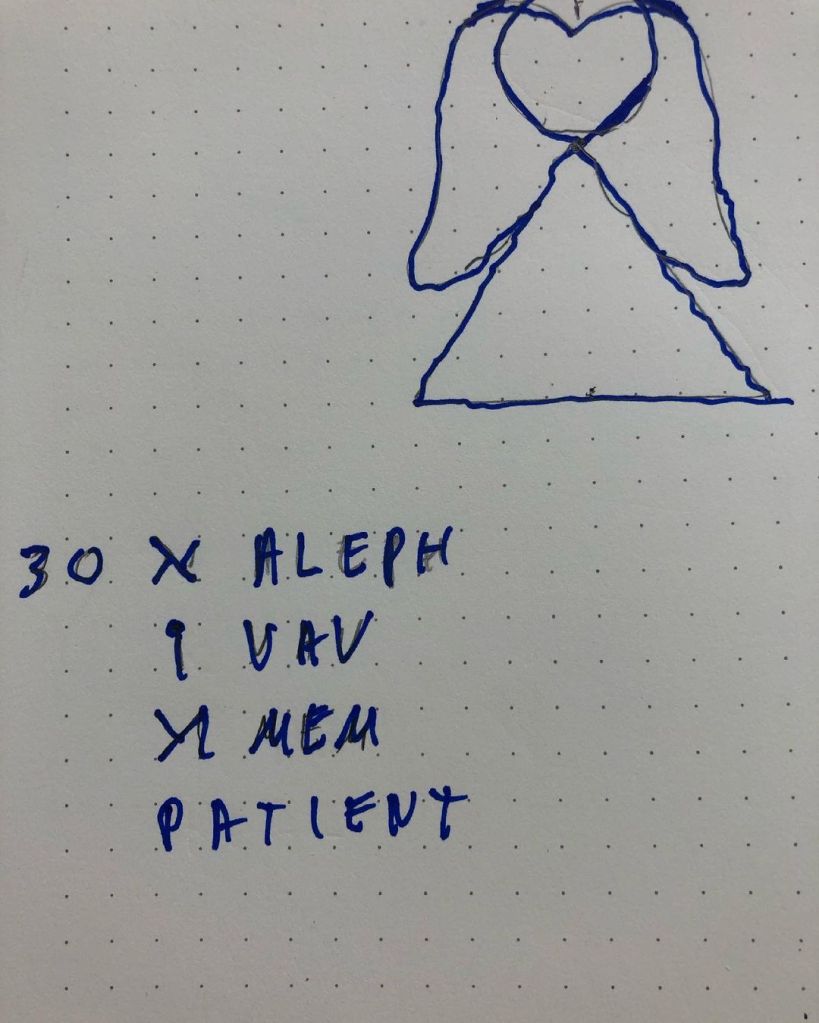 30 א ALEPH
ו VAV
מ MEM
PATIENT